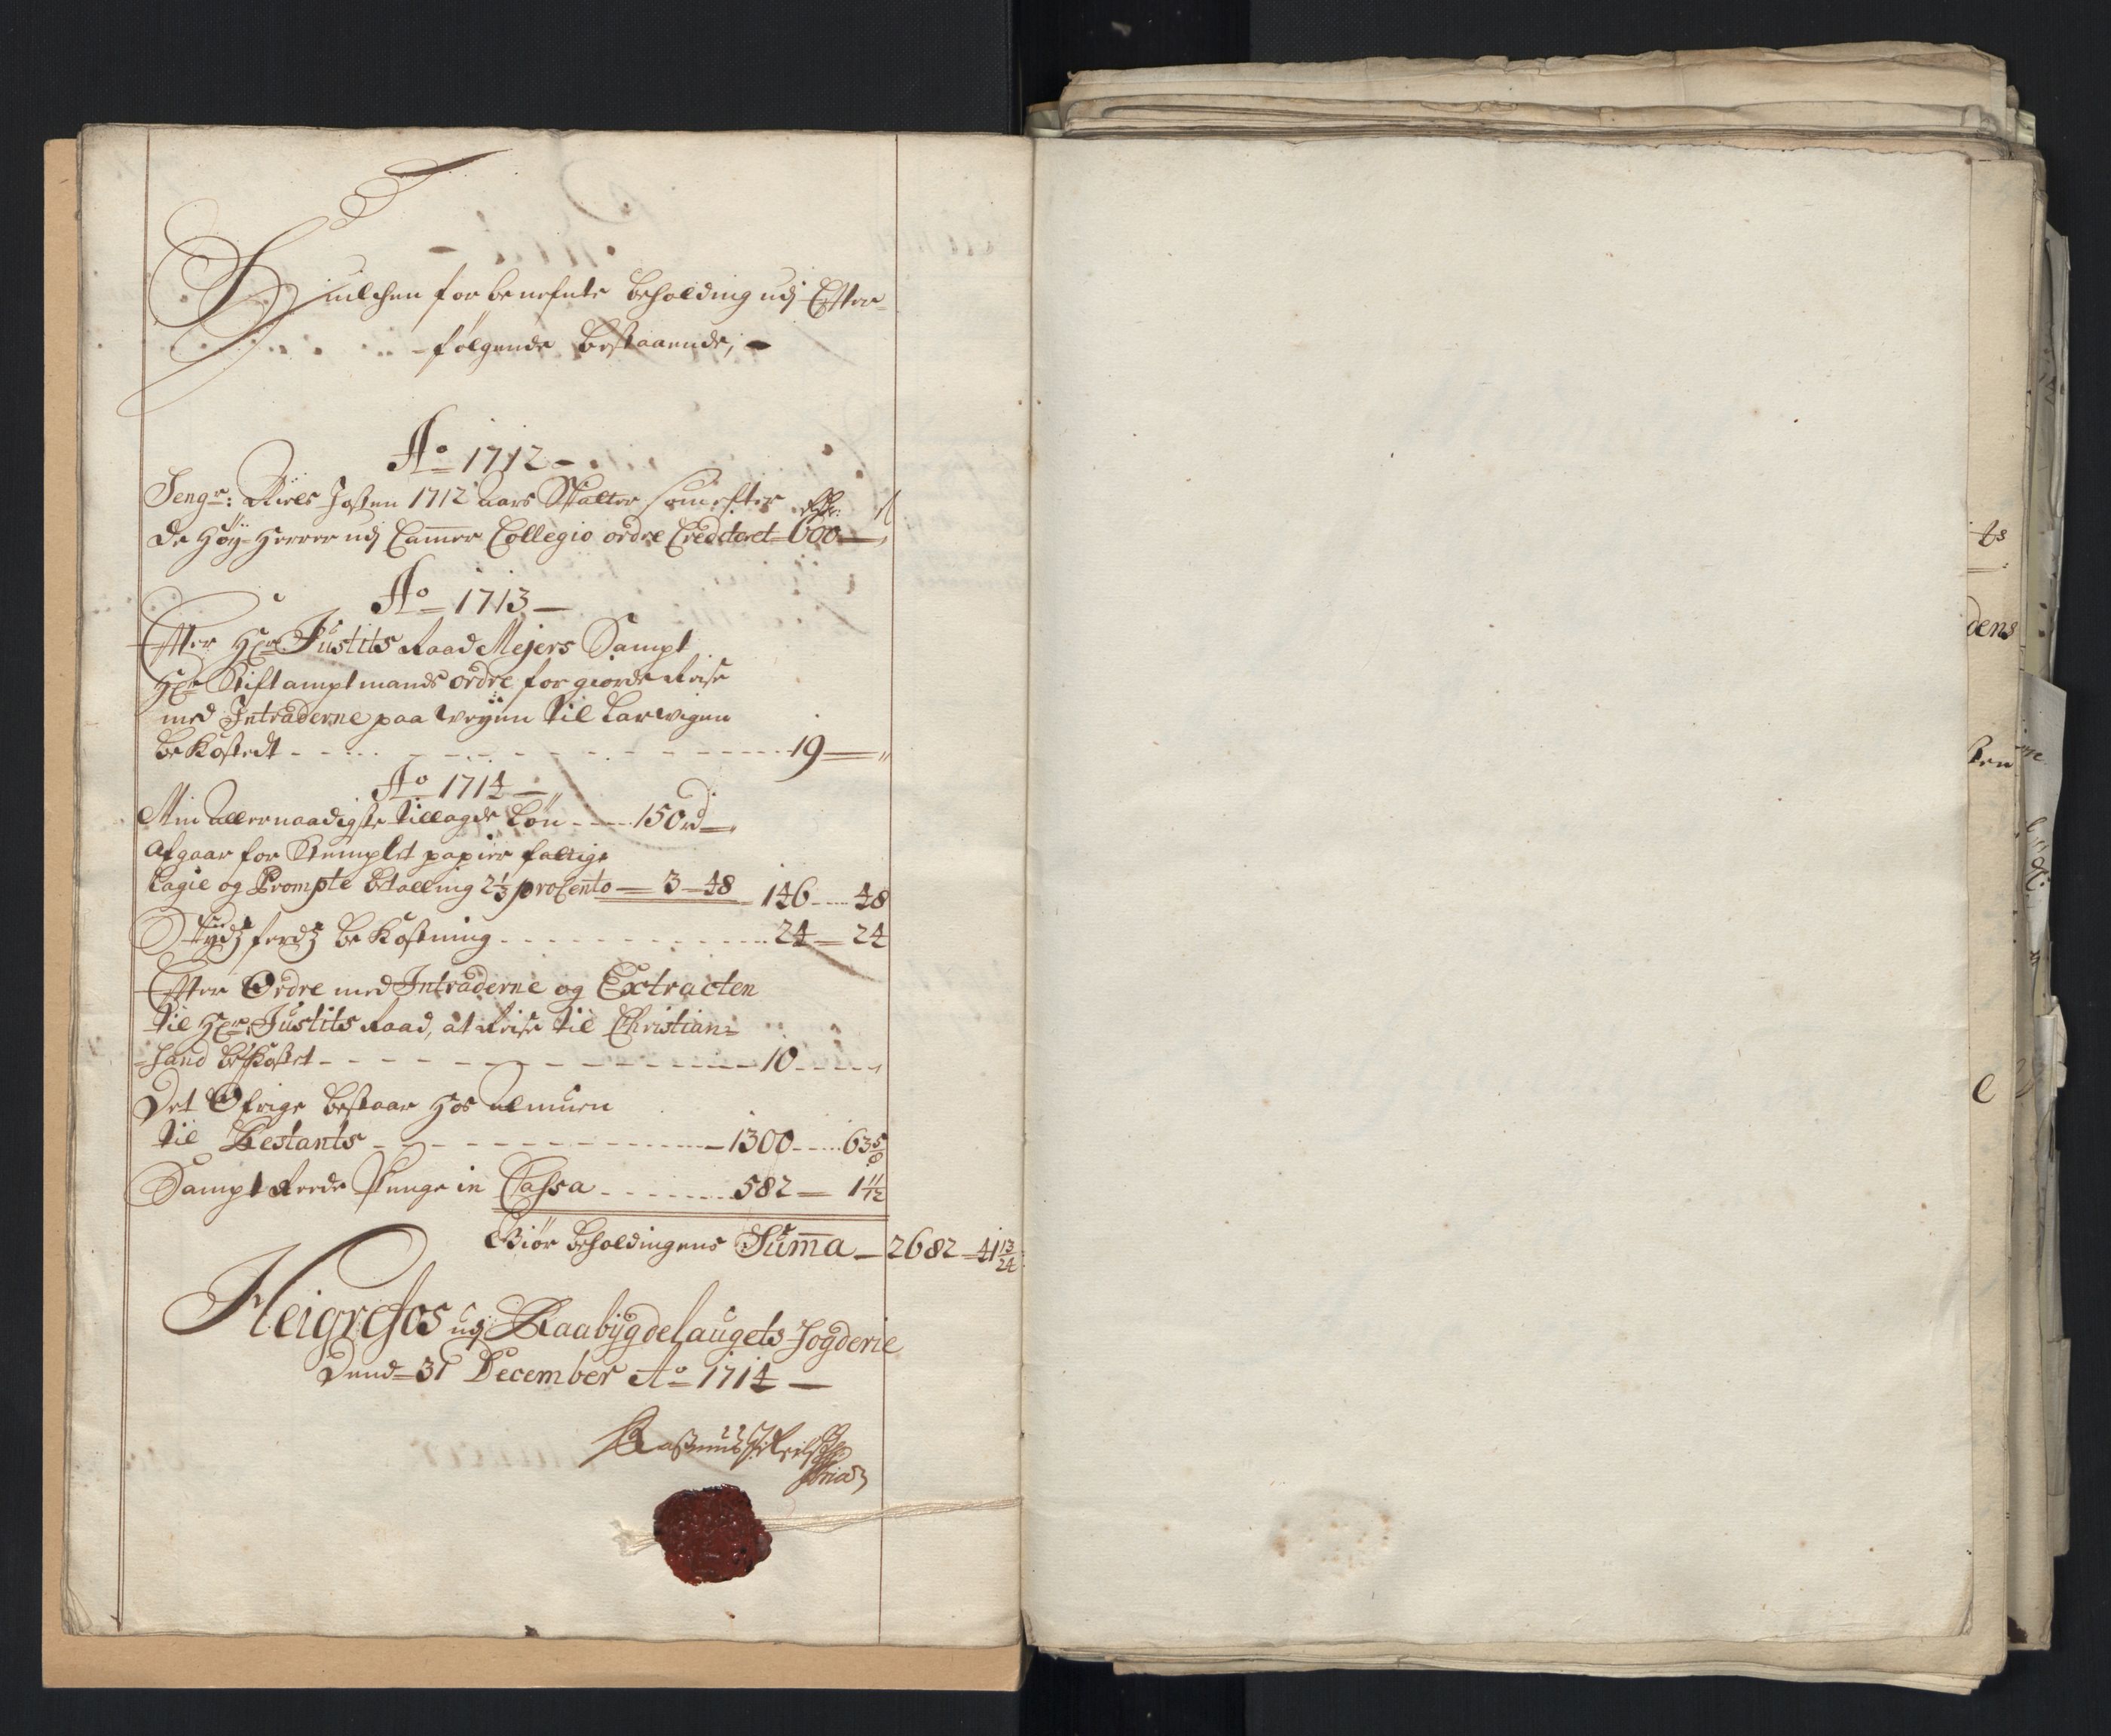 Huilchen forbenefnte beholding udj Effter-
følgende bestaaende;
Ao 1712
Sengr: Niels Josten 1712 aars Skatter som efter Rdr: ß
de Høy-Herrer udj Cammer Collegio ordre Crediteret 600
Ao 1713
Effter Hr Justits Raad Mejers Sampt
Hr Stiftamptmands ordre for giorde Reise
med Intraderne paa Veyen til Larwigen
bekostedt 19
Ao 1714
Min allernaadigste tillagde Løn 150 rd
afgaar for Stemplet papiir
lagie og Prompte betalling 2⅓ procento 3 48 146 48
bekostning 24 24
Effter Ordre med Intraderne og Extracten
til Hr: Justits Raad, at Reise til Christian-
-sand bekostet 10
Det Øfrige bestaar hos almuen
til Restants 1300 63 5/8
Sampt Rede Penge in Cassa 582 1 11/12
Giør beholdingens Summa 2682 41 13/24
Heigrefos udj Raabÿgdelaugets Fogderie
Dend 31 December Ao 1714
Rasmus
ts
dens
ten
e